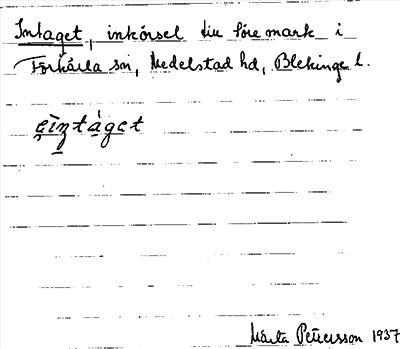 Intaget, inkörsel till före mark i
Förkärla sn, Medelstad hd, Blekinge l.
ẹìntágɛt
Märta Petersson 1937